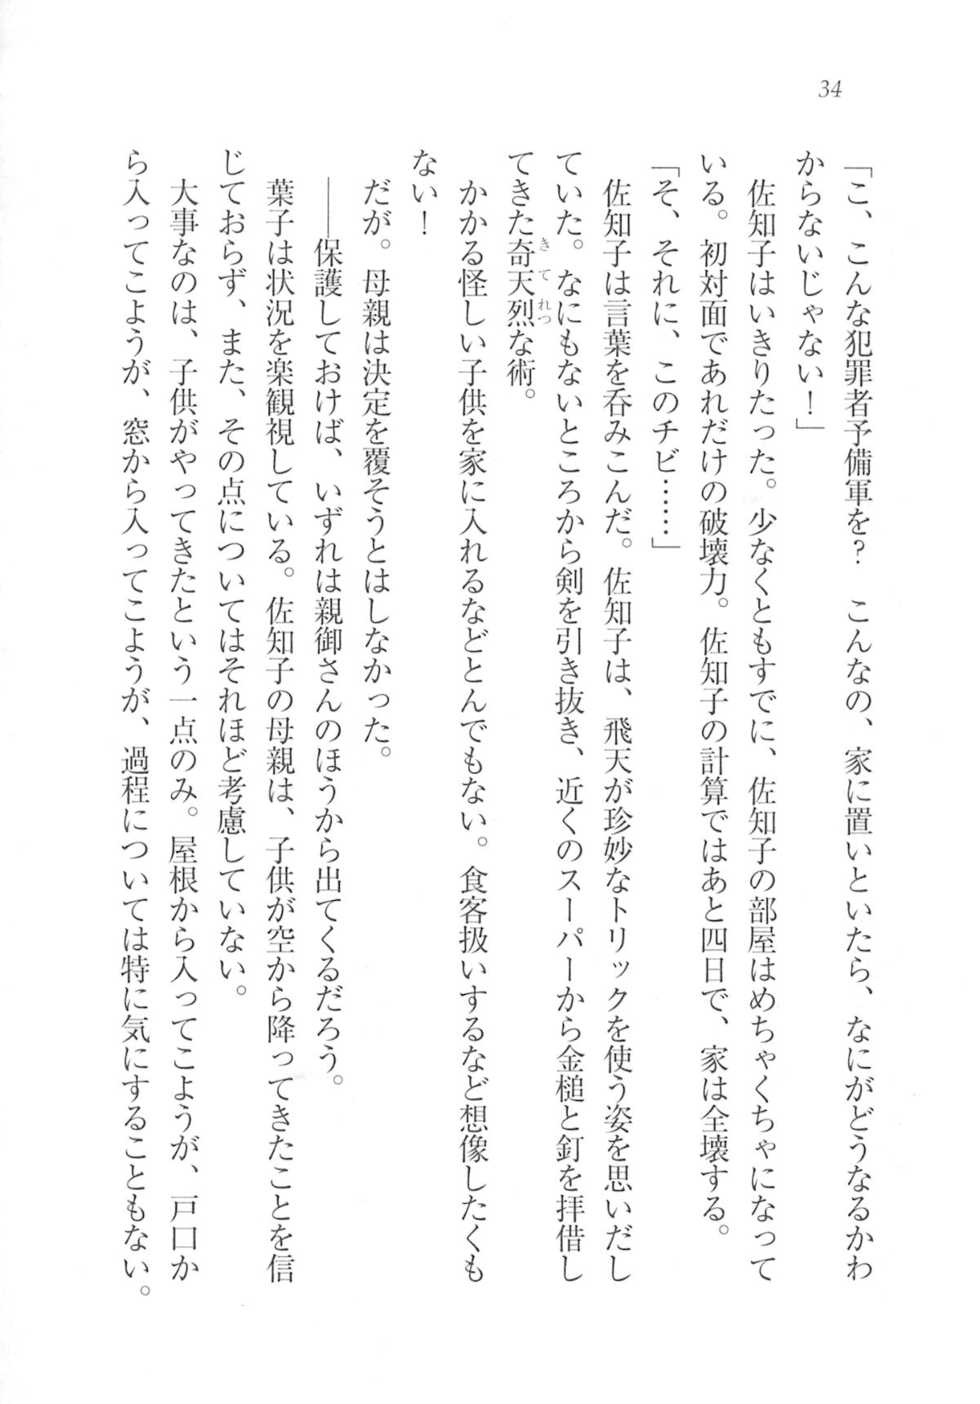 34
「こ、こんな犯罪者予備軍を？　こんなの、家に置いといたら、なにがどうなるかわ
からないじゃない！」
　佐知子はいきりたった。少なくともすでに、佐知子の部屋はめちゃくちゃになって
いる。初対面であれだけの破壊力。佐知子の計算ではあと四日で、家は全壊する。
「そ、それに、このチビ……」
　佐知子は言葉を呑みこんだ。佐知子は、飛天が珍妙なトリックを使う姿を思いだし
ていた。なにもないところから剣を引き抜き、近くのスーパーから金槌と釘を拝借し
てきた奇天烈な術。
きてれつ
　かかる怪しい子供を家に入れるなどとんでもない。食客扱いするなど想像したくも
ない！
　だが。母親は決定を覆そうとはしなかった。
　――保護しておけば、いずれは親御さんのほうから出てくるだろう。
　葉子は状況を楽観視している。佐知子の母親は、子供が空から降ってきたことを信
じておらず、また、その点についてはそれほど考慮していない。
　大事なのは、子供がやってきたという一点のみ。屋根から入ってこようが、戸口か
ら入ってこようが、窓から入ってこようが、過程については特に気にすることもない。